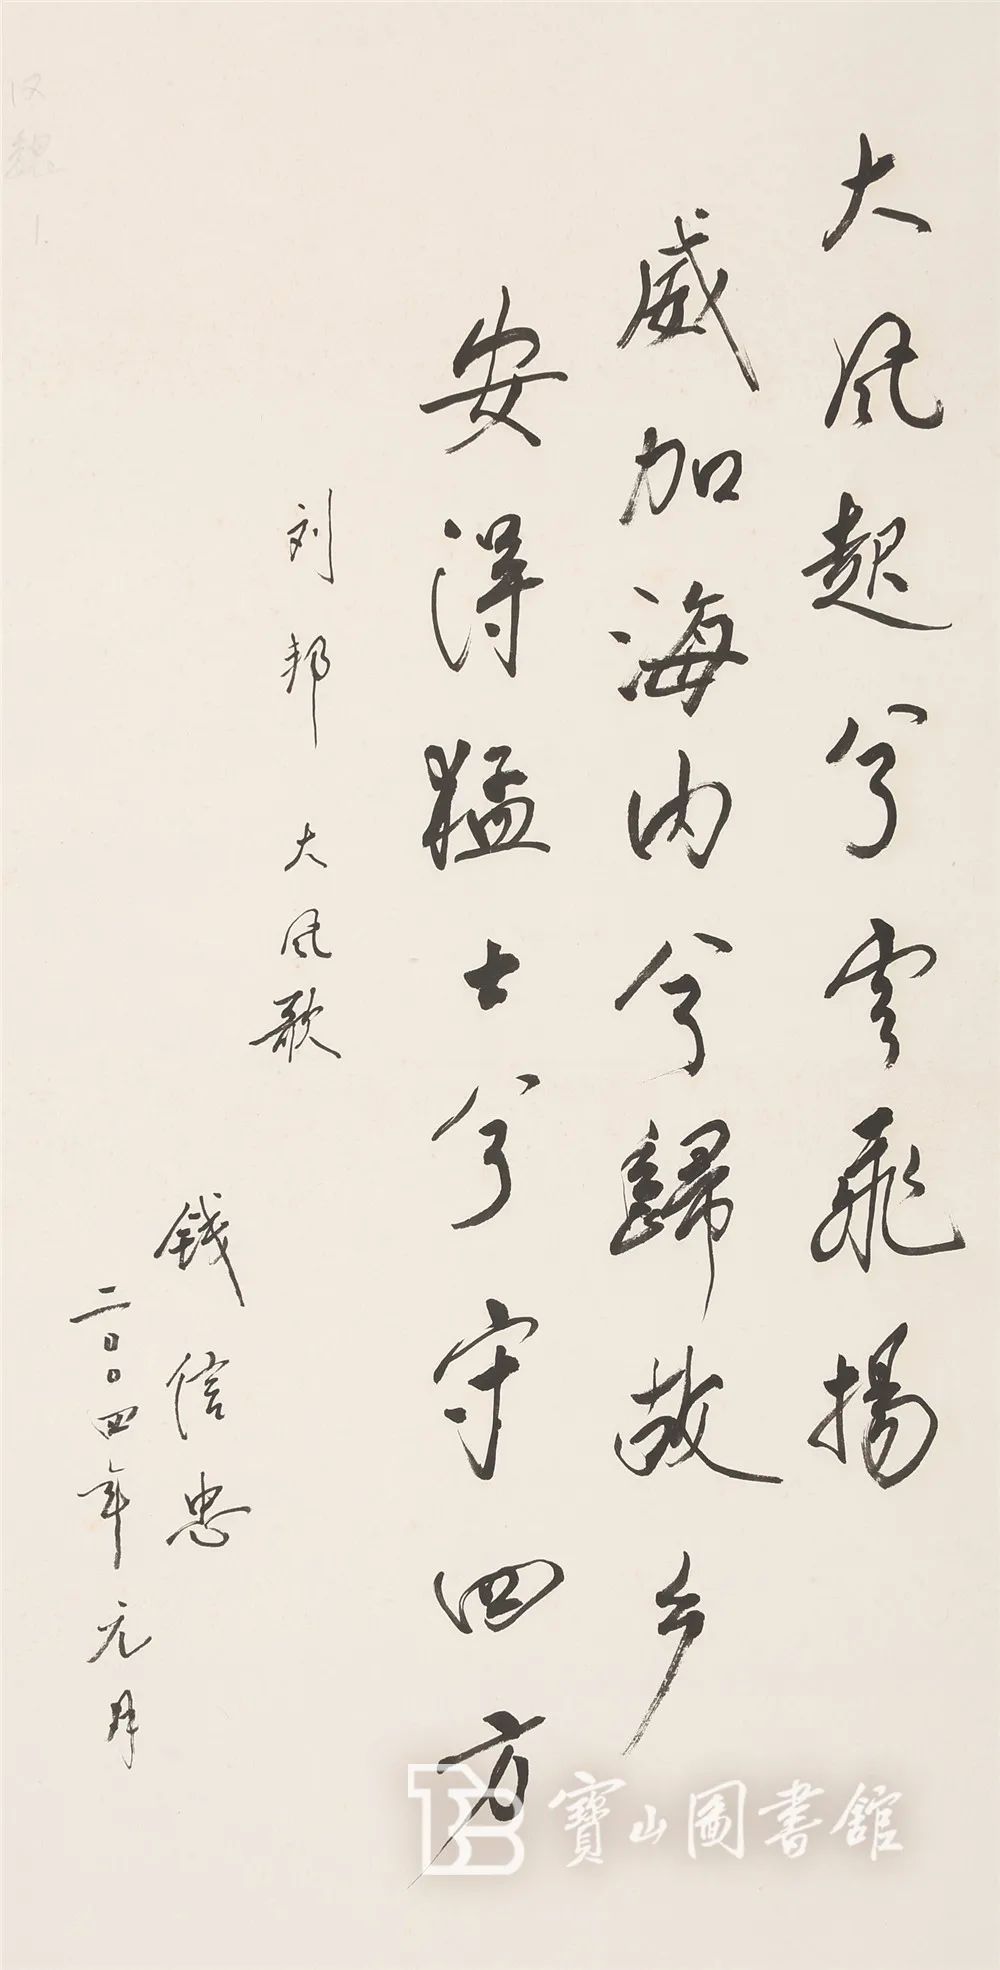 大风起兮云飞扬
威加海内兮歸故乡
安得猛士兮守四方
刘邦 大风歌
钱信忠
二〇〇四年元月
汉魏 1.
寶山圖書館